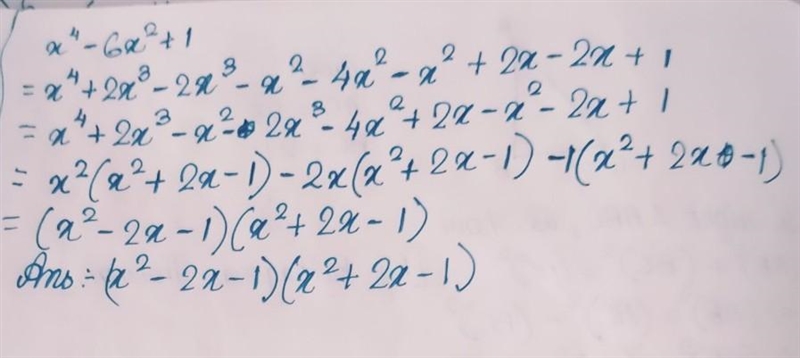 x⁴ - 6x² + 1
= x⁴ + 2x³ - 2x³ - x² - 4x² - x² + 2x - 2x + 1
= x⁴ + 2x³ - x² - 2x³ - 4x² + 2x - x² - 2x + 1
= x²(x² + 2x - 1) - 2x(x² + 2x - 1) - 1(x² + 2x - 1)
= (x² - 2x - 1)(x² + 2x - 1)
Ans :- (x² - 2x - 1)(x² + 2x - 1)